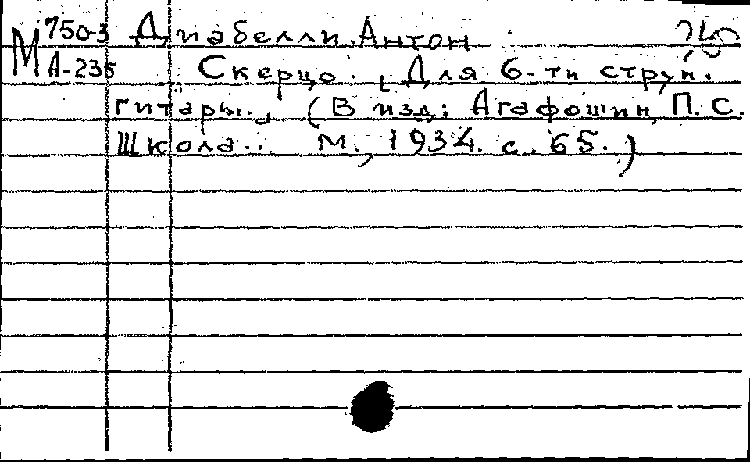 М 750-3 Диабелли Антон
А-235 Скерцо. [Для 6-ти струн.
гитары.] (В изд: Агафошин П. С.
Школа.. М., 1934. с. 65.)